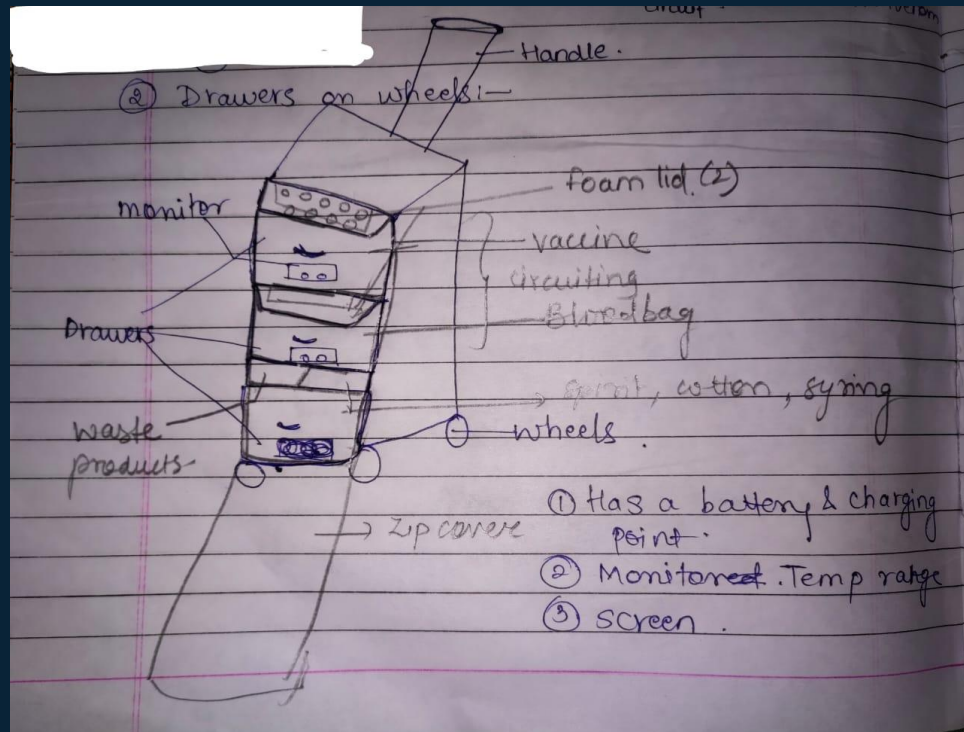 Handle.
② Drawers on wheels:-
foam lid. (2)
monitor
vaccine
circuiting
Bloodbag
Drawers
cotton, syring
waste
products
wheels.
① Has a battery & charging
point.
→ Zip cover
② Monitored. Temp range
③ Screen.